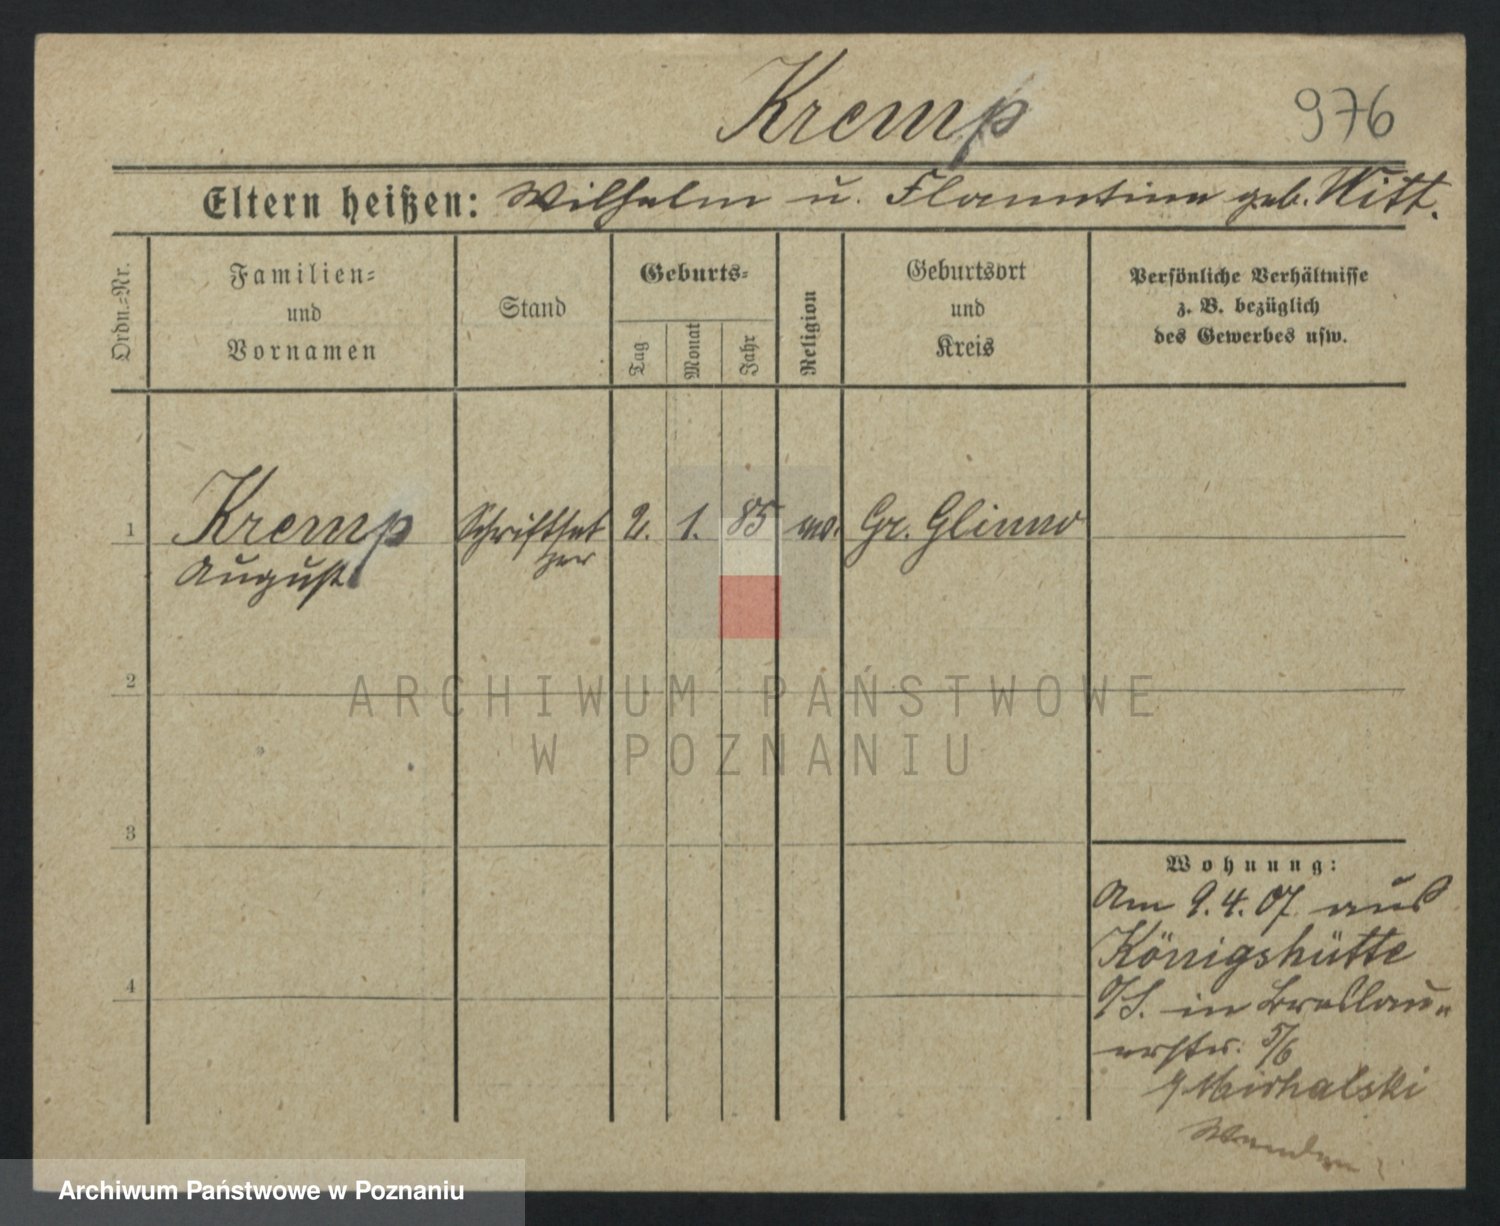 Kremp
976
Eltern heißen: Wilhelm u. Florentine geb. Witt.
Ordn.-Nr.
Familien-
und
Vornamen
Stand
Geburts-
Tag
Monat
Jahr
Religion
Geburtsort
und
Kreis
Persönliche Verhältnisse
z. B. bezüglich
des Gewerbes usw.
1
Kremp
August
Schriftset
zer
2.
1.
85
ev.
Gr. Glinno
2
ARCHIWUM PAŃSTWOWE
W POZNANIU
3
4
Wohnung:
Am 9.4.07 aus
Königshütte
O/S. in Breslau-
erstr. 5/6
Michalski
Wenden
Archiwum Państwowe w Poznaniu